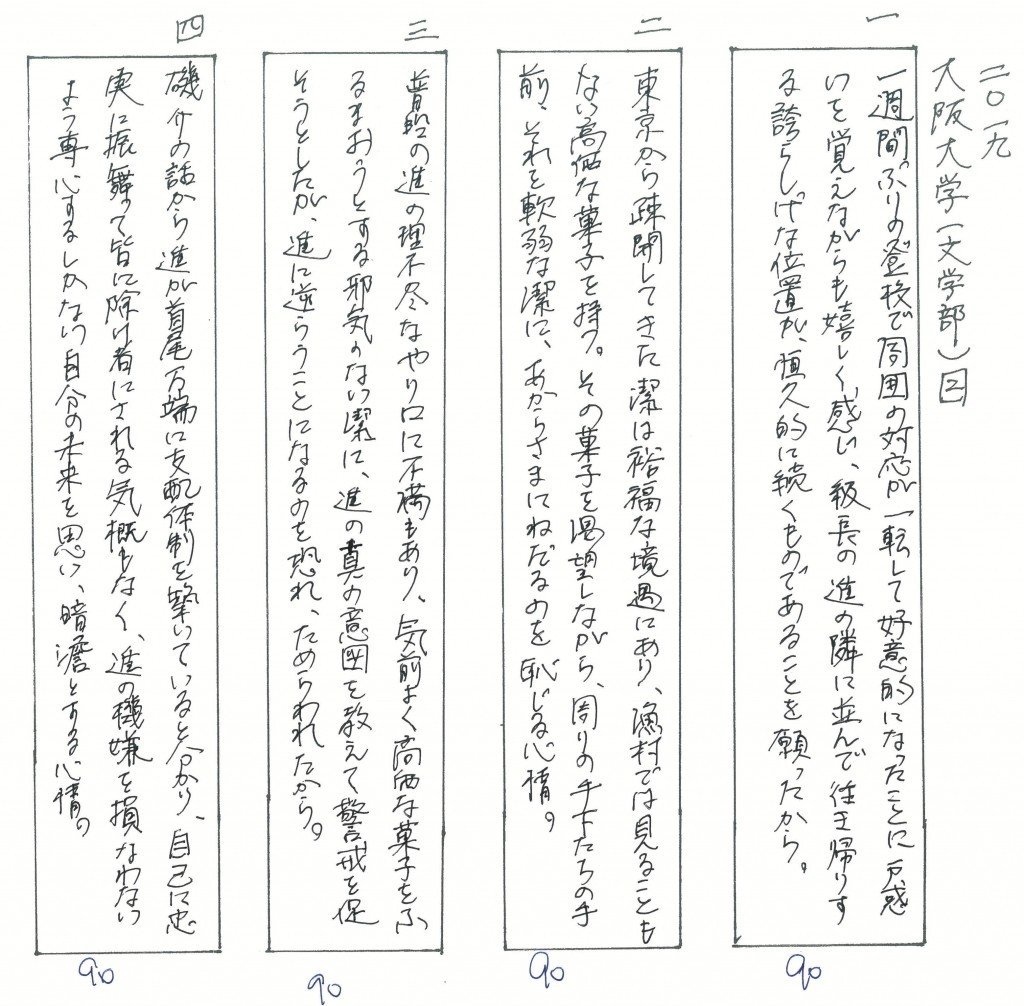 二〇一九
大阪大学（文学部）囗
一
一週間ぶりの登校で周囲の対応が一転して好意的になったことに戸惑
いを覚えながらも嬉しく感じ、級長の進の隣に並んで往き帰りす
る誇らしげな位置が、恒久的に続くものであることを願ったから。
90
二
東京から疎開してきた潔は裕福な境遇にあり、漁村では見ることも
ない高価な菓子を持つ。その菓子を渇望しながら、周りの手下たちの手
前、それを軟弱な潔に、あからさまにねだるのを恥じる心情。
90
三
普段の進の理不尽なやり口に不満もあり、気前よく高価な菓子をふ
るまおうとする邪気のない潔に、進の真の意図を教えて警戒を促
そうとしたが、進に逆らうことになるのを恐れ、ためらわれたから。
90
四
磯介の話から進が首尾万端に支配体制を繋いていると分かり、自己に忠
実に振舞って皆に除け者にされる気概もなく、進の機嫌を損なわない
よう専心するしかない自分の未来を思い、暗澹とする心情。
90